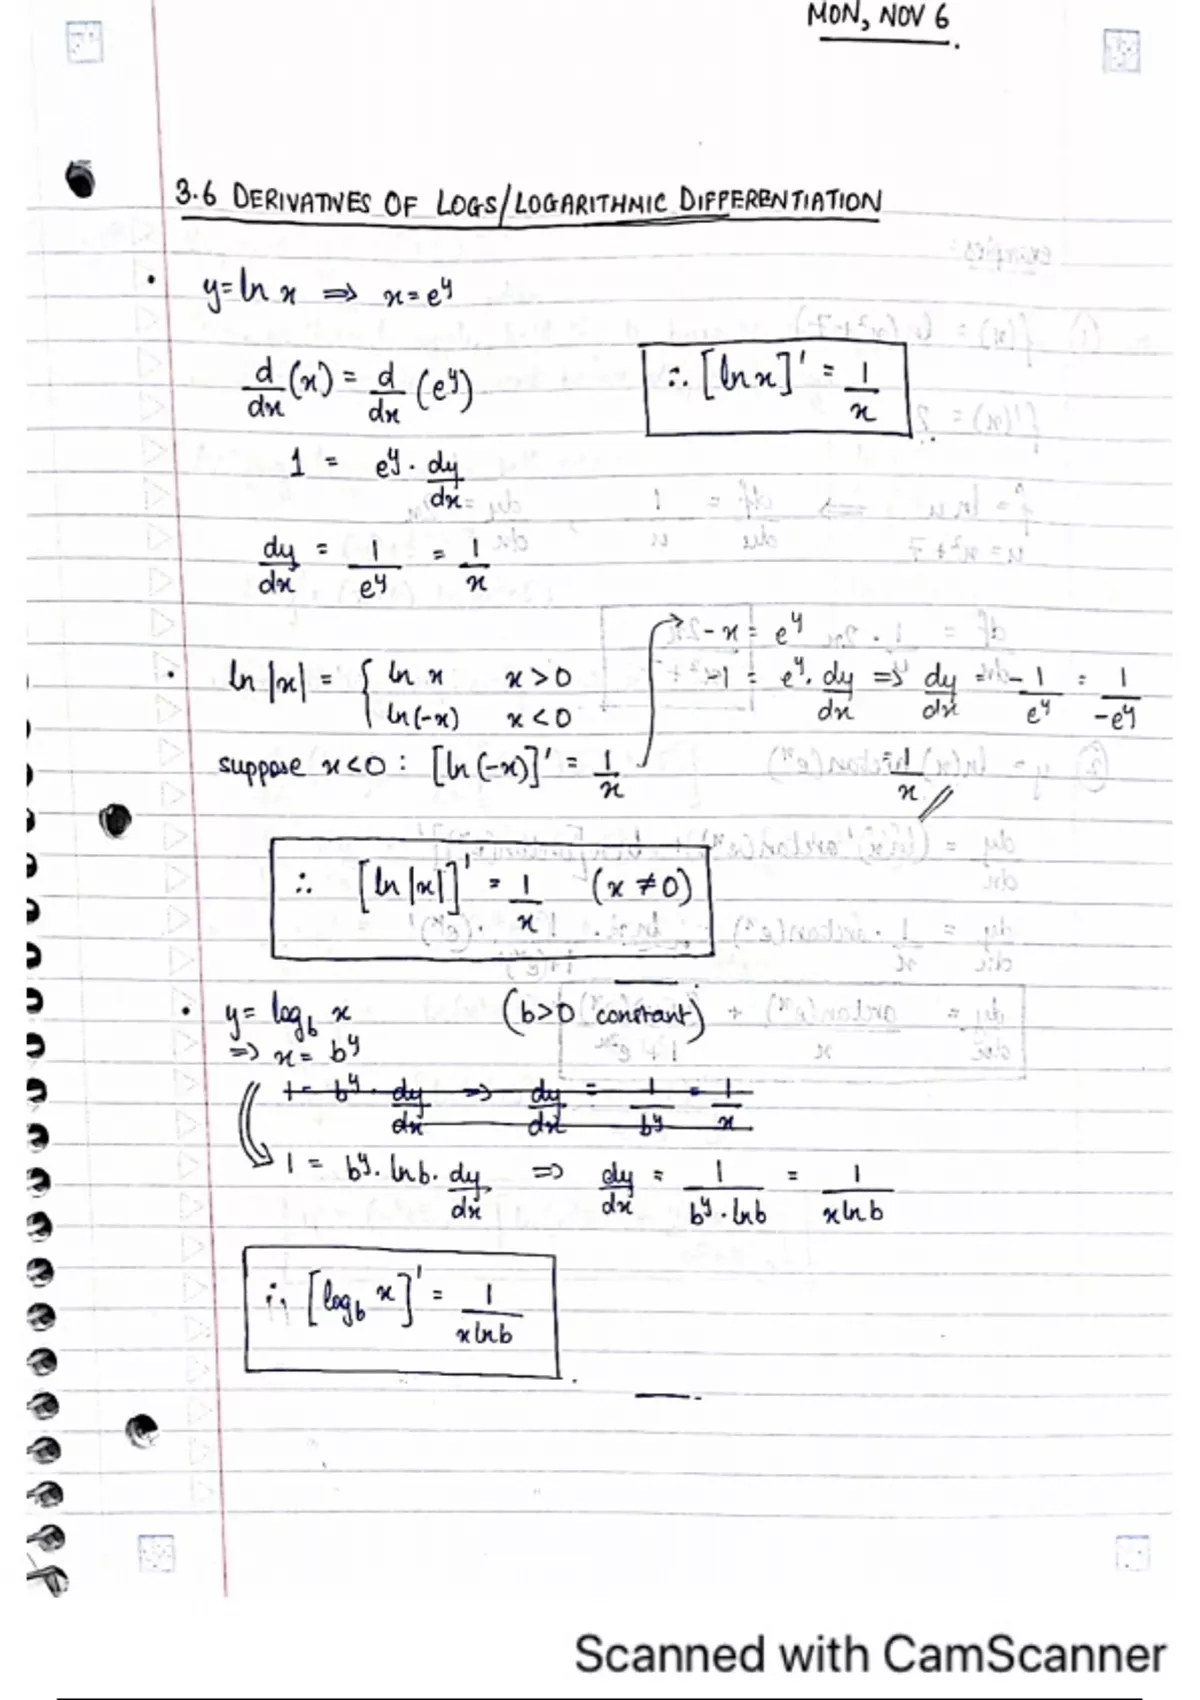 MON, NOV 6.
3.6 DERIVATIVES OF LOGS/LOGARITHMIC DIFFERENTIATION
• y = ln x ⇒ x = e^y
d/dx (x) = d/dx (e^y)
∴ [ln x]' = 1/x
1 = e^y · dy/dx
dy/dx = 1/e^y = 1/x
-x = e^y
• ln |x| = { ln x x > 0
ln(-x) x < 0
-1 = e^y · dy/dx ⇒ dy/dx = -1/e^y = 1/-e^y
suppose x < 0 : [ln (-x)]' = 1/x
= 1/x //
∴ [ln |x|]' = 1/x (x ≠ 0)
• y = log_b x (b > 0 constant)
⇒ x = b^y
1 = b^y · dy/dx ⇒ dy/dx = 1/b^y = 1/x
1 = b^y · ln b · dy/dx ⇒ dy/dx = 1/(b^y · ln b) = 1/(x ln b)
∴ [log_b x]' = 1/(x ln b)
Scanned with CamScanner